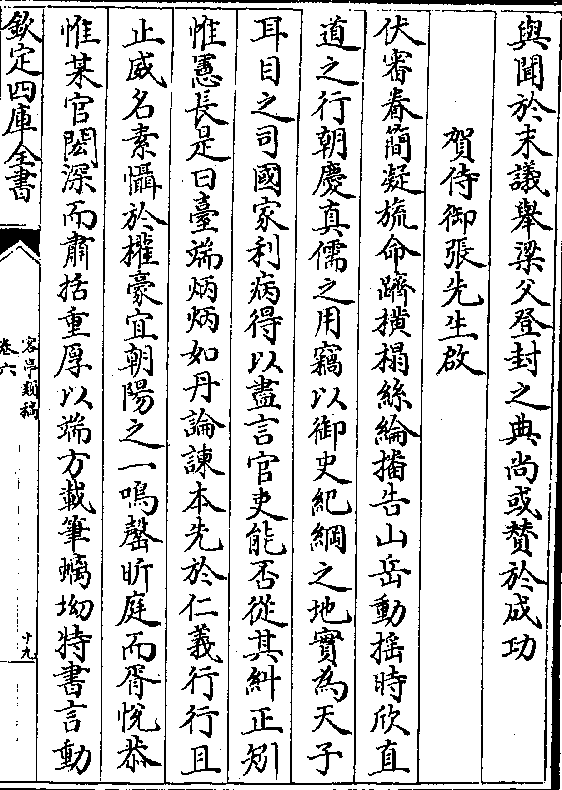 與聞於末議舉梁父登封之典尚或賛於成功
賀侍御張先生啟
伏審眷簡凝旒命躋橫榻絲綸播告山岳動揺時欣直
道之行朝慶真儒之用竊以御史紀綱之地實為天子
耳目之司國家利病得以盡言官吏能否從其糾正矧
惟憲長是曰臺端炳炳如丹論諫本先於仁義行行且
止威名素懾於權豪宜朝陽之一鳴罄昕庭而胥恱恭
惟某官閎深而肅括重厚以端方載筆螭坳特書言動
欽定四庫全書
客亭類稿
卷六
十九